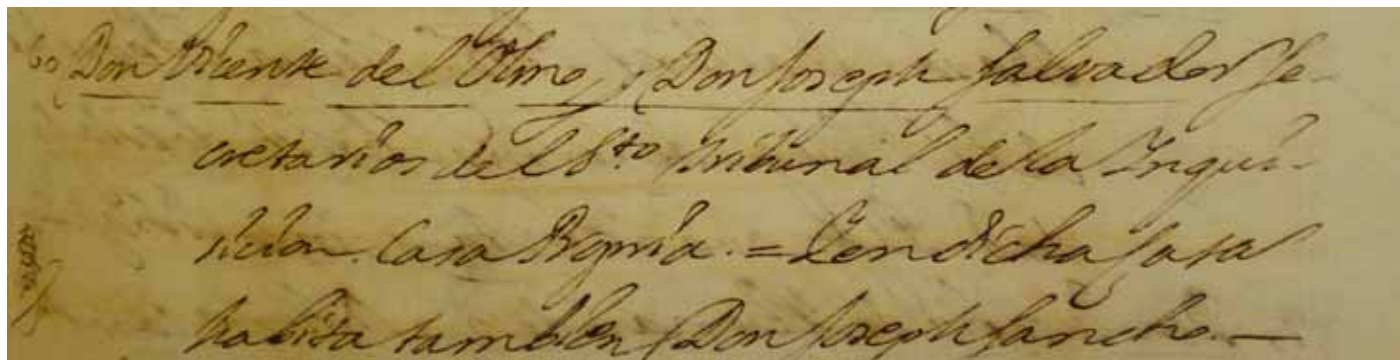 60 Don Vicente del Olmo, y Don Joseph Salvador Se-
cretarios del Sto Tribunal de la Inqui-
sicion. Casa Propria. = Y en dicha Casa
habita tambien Don Joseph Sancho. —